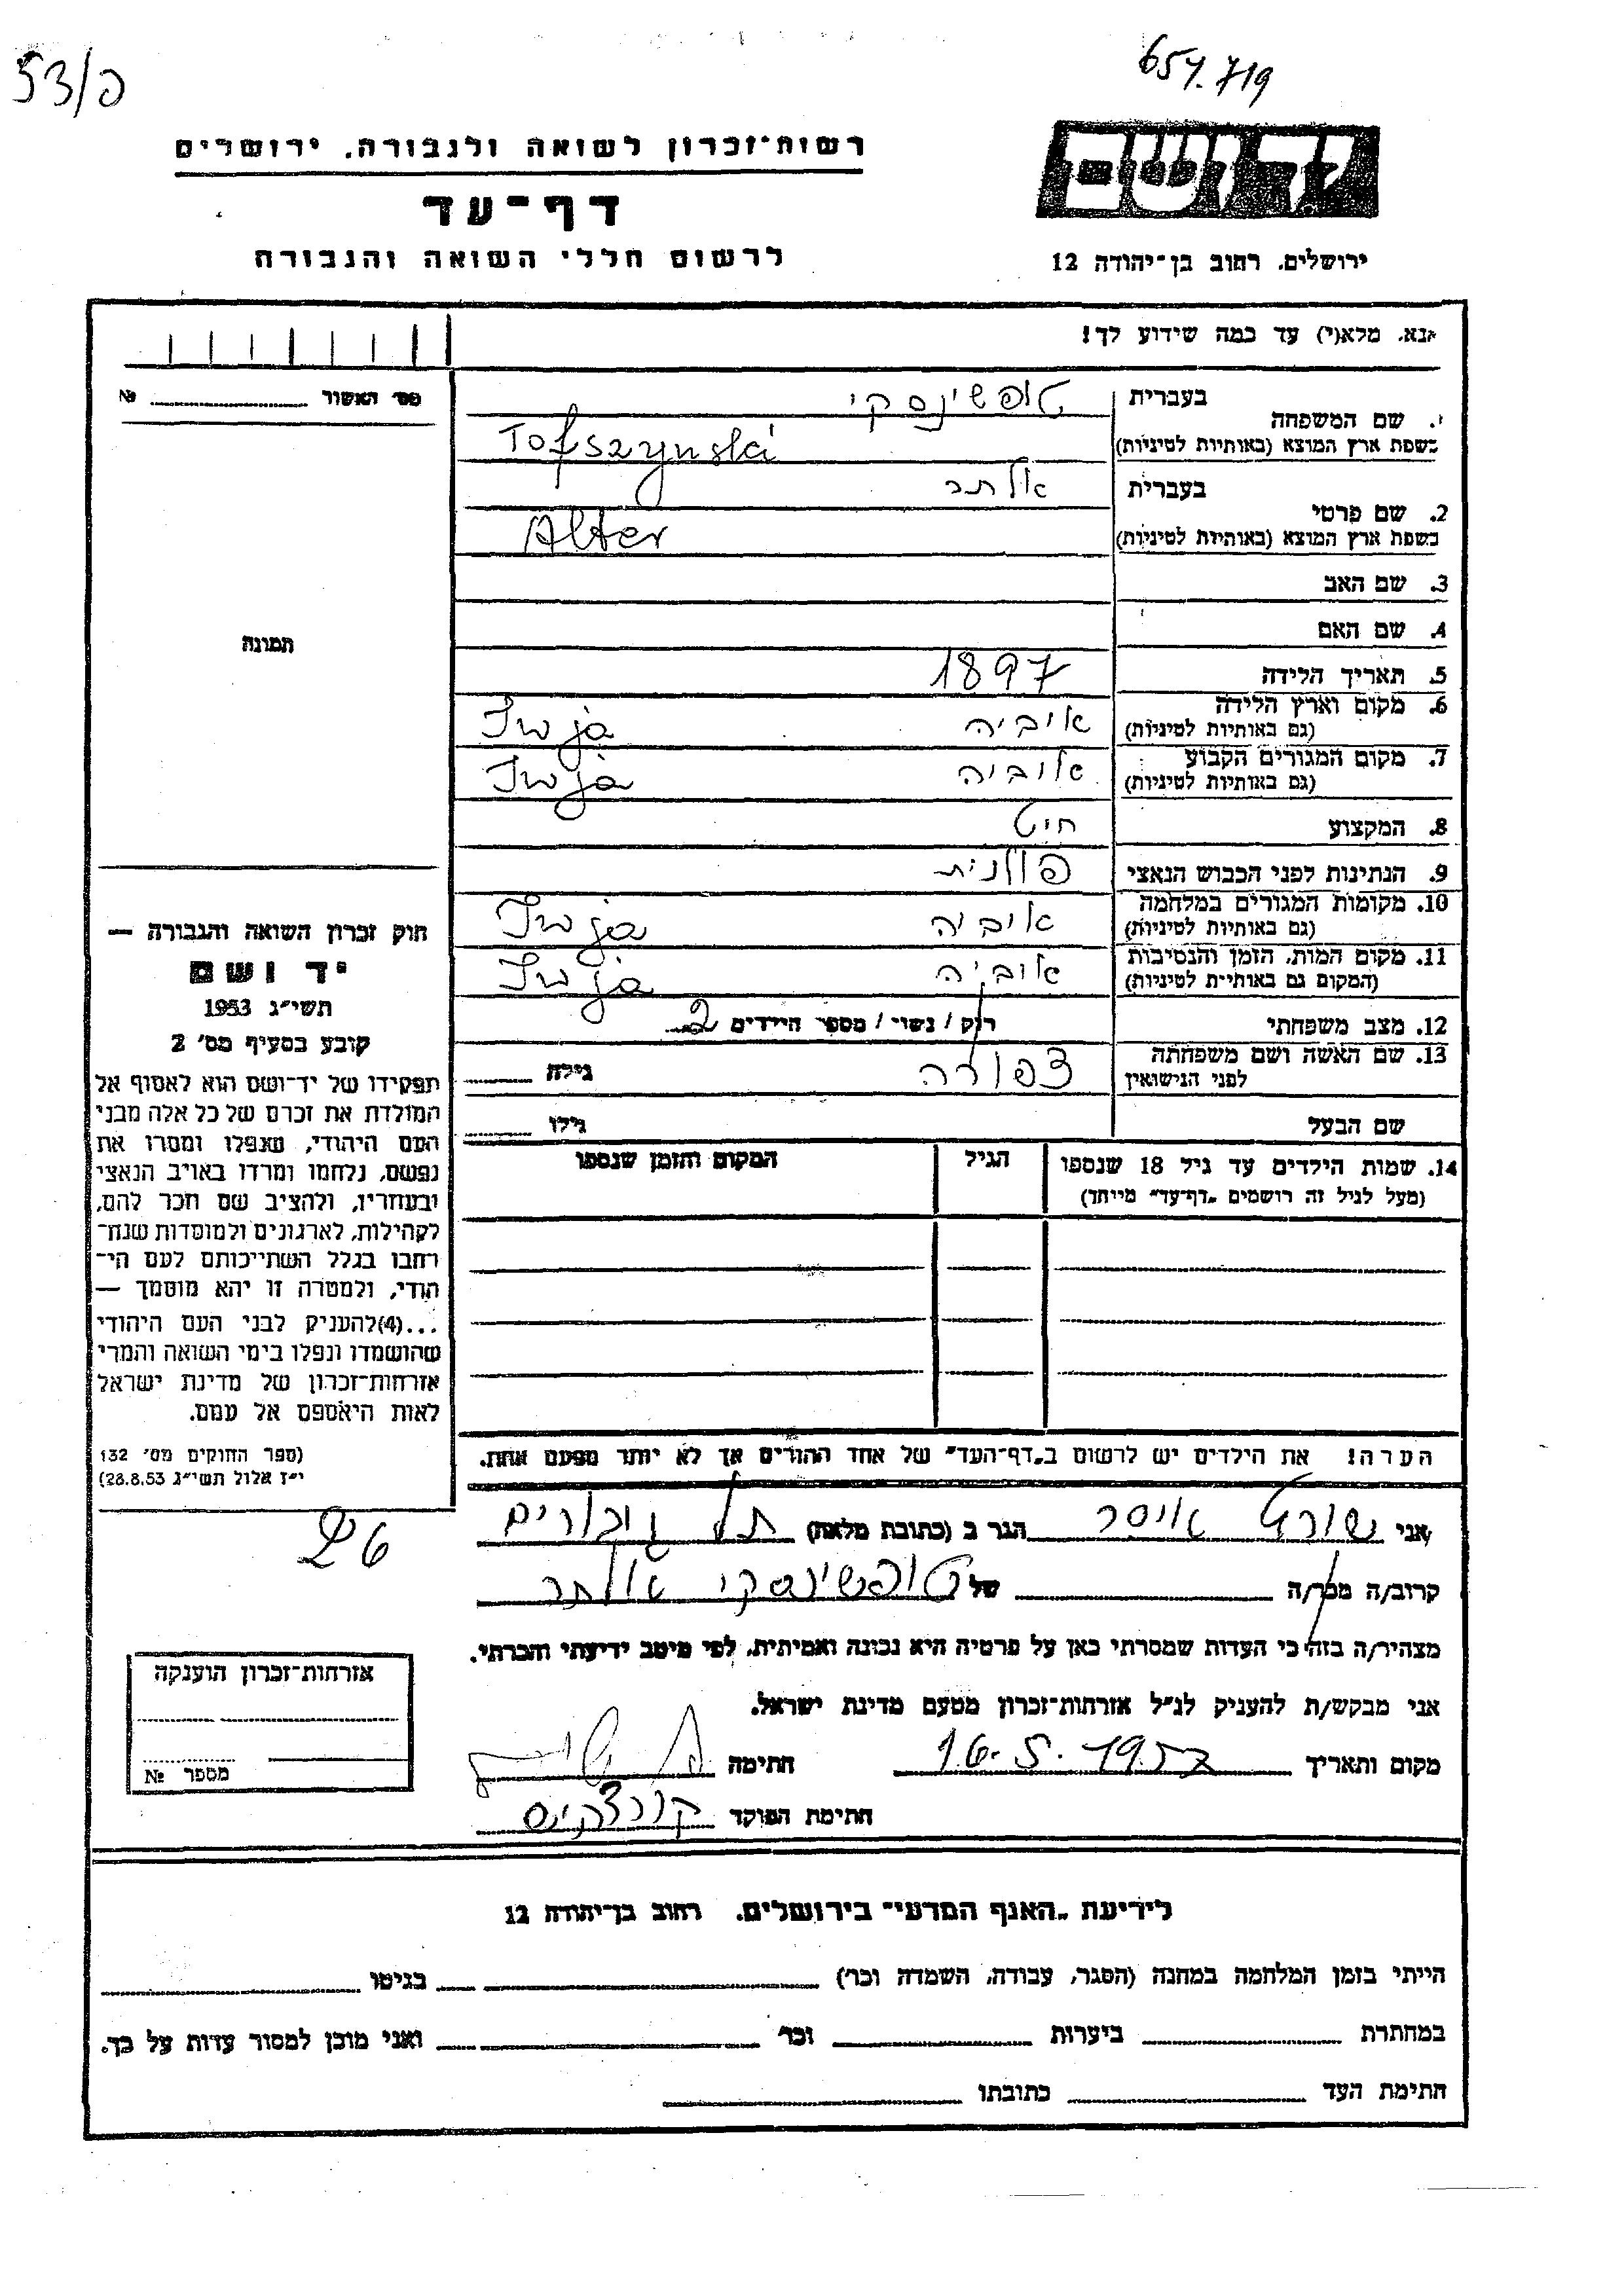 53/פ
657.719
רשות־זכרון לשואה ולגבורה, ירושלים
דף־עד
לרשום חללי השואה והגבורה
יד ושם
ירושלים, רחוב בן־יהודה 12
אנא, מלא(י) עד כמה שידוע לך!
מס׳ האשור № 
תמונה
1. שם המשפחה בעברית טופשינסקי
בשפת ארץ המוצא (באותיות לטיניות) Tofszynski
2. שם פרטי בעברית אלתר
בשפת ארץ המוצא (באותיות לטיניות) Alter
3. שם האב
4. שם האם
5. תאריך הלידה 1897
6. מקום וארץ הלידה (גם באותיות לטיניות) איביה Iwja
7. מקום המגורים הקבוע (גם באותיות לטיניות) אוביה Iwja
8. המקצוע חיט
9. הנתינות לפני הכבוש הנאצי פולנית
10. מקומות המגורים במלחמה (גם באותיות לטיניות) איביה Iwja
11. מקום המות, הזמן והנסיבות (המקום גם באותיות לטיניות) אוביה Iwja
12. מצב משפחתי רוק / נשוי / מספר הילדים 2
13. שם האשה ושם משפחתה לפני הנישואין צפורה גילה
שם הבעל גילו
14. שמות הילדים עד גיל 18 שנספו (מעל לגיל זה רושמים „דף־עד״ מיוחד) הגיל המקום והזמן שנספו
הערה! את הילדים יש לרשום ב„דף־העד״ של אחד ההורים אך לא יותר מפעם אחת.
חוק זכרון השואה והגבורה —
יד ושם
תשי״ג 1953
קובע בסעיף מס׳ 2
תפקידו של יד־ושם הוא לאסוף אל
המולדת את זכרם של כל אלה מבני
העם היהודי, שנפלו ומסרו את
נפשם, נלחמו ומרדו באויב הנאצי
ובעוזריו, ולהציב שם וזכר להם,
לקהילות, לארגונים ולמוסדות שנח־
רבו בגלל השתייכותם לעם הי־
הודי, ולמטרה זו יהא מוסמך —
...(4)להעניק לבני העם היהודי
שהושמדו ונפלו בימי השואה והמרי
אזרחות־זכרון של מדינת ישראל
לאות היאספם אל עמם.
(ספר החוקים מס׳ 132
י״ז אלול תשי״ג 28.8.53)
אני איסר הגר ב (כתובת מלאה) תל גבורים
קרוב/ה מכר/ה של טופשינסקי אלתר
מצהיר/ה בזה כי העדות שמסרתי כאן על פרטיה היא נכונה ואמיתית, לפי מיטב ידיעתי והכרתי.
אני מבקש/ת להעניק לנ״ל אזרחות־זכרון מטעם מדינת ישראל.
מקום ותאריך 16.5.1957 חתימה
חתימת הפוקד
אזרחות־זכרון הוענקה
מספר №
לידיעת „האגף המדעי״ בירושלים, רחוב בן־יהודה 12
הייתי בזמן המלחמה במחנה (הסגר, עבודה, השמדה וכו׳) בגיטו
במחתרת ביערות וכו׳ ואני מוכן למסור עדות על כך.
חתימת העד כתובתו